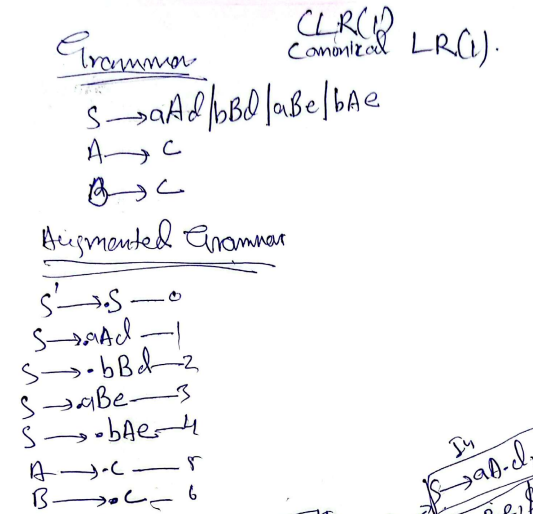 CLR(1)
Canonical LR(1).
Grammar
S → aAd/bBd/aBe/bAe
A → C
B → C
Augmented Grammar
S' → .S — 0
S → .aAd — 1
S → .bBd — 2
S → .aBe — 3
S → .bAe — 4
A → .C — 5
B → .C — 6
I4
S → aA.d,